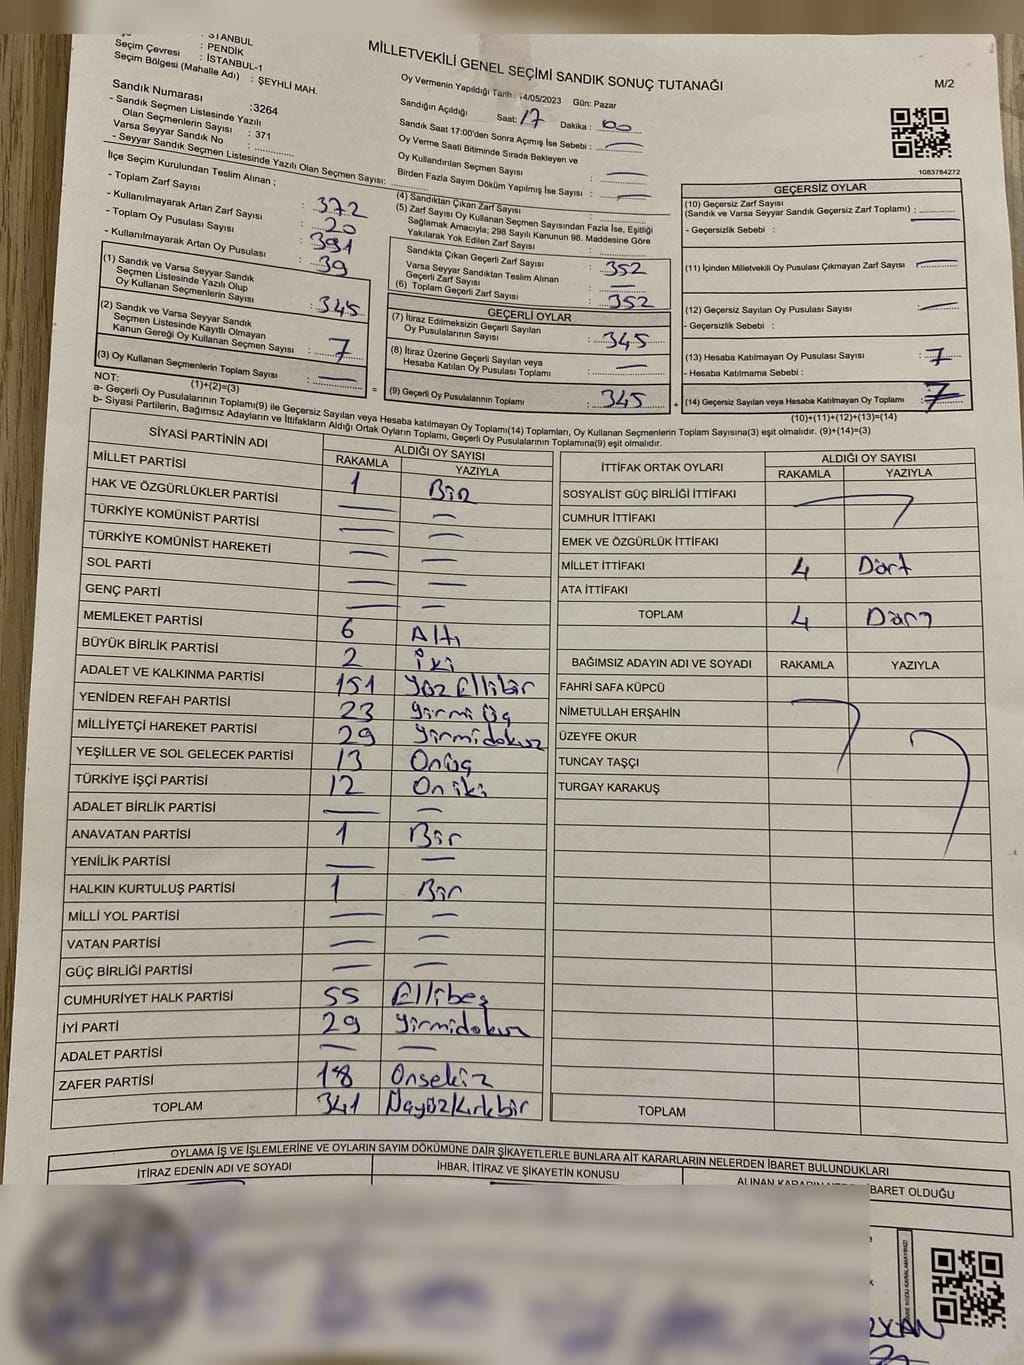 MİLLETVEKİLİ GENEL SEÇİMİ SANDIK SONUÇ TUTANAĞI
M/2
: İSTANBUL
: PENDİK
Seçim Çevresi : İSTANBUL-1
Seçim Bölgesi (Mahalle Adı) : ŞEYHLİ MAH.
Sandık Numarası :3264
- Sandık Seçmen Listesinde Yazılı
Olan Seçmenlerin Sayısı : 371
Varsa Seyyar Sandık No : ..............
- Seyyar Sandık Seçmen Listesinde Yazılı Olan Seçmen Sayısı: ..............
Oy Vermenin Yapıldığı Tarih : 14/05/2023 Gün: Pazar
Sandığın Açıldığı Saat: 17 Dakika : 00
Sandık Saat 17:00'den Sonra Açımış İse Sebebi : —
Oy Verme Saati Bitiminde Sırada Bekleyen ve
Oy Kullandırılan Seçmen Sayısı : —
Birden Fazla Sayım Döküm Yapılmış İse Sayısı : —
1083784272
İlçe Seçim Kurulundan Teslim Alınan ;
- Toplam Zarf Sayısı : 372
- Kullanılmayarak Artan Zarf Sayısı : 20
- Toplam Oy Pusulası Sayısı : 391
- Kullanılmayarak Artan Oy Pusulası : 39
(1) Sandık ve Varsa Seyyar Sandık
Seçmen Listesinde Yazılı Olup
Oy Kullanan Seçmenlerin Sayısı : 345
(2) Sandık ve Varsa Seyyar Sandık
Seçmen Listesinde Kayıtlı Olmayan
Kanun Gereği Oy Kullanan Seçmen Sayısı : 7
(3) Oy Kullanan Seçmenlerin Toplam Sayısı : —
(1)+(2)=(3)
(4) Sandıktan Çıkan Zarf Sayısı :
(5) Zarf Sayısı Oy Kullanan Seçmen Sayısından Fazla İse, Eşitliği
Sağlamak Amacıyla; 298 Sayılı Kanunun 98. Maddesine Göre
Yakılarak Yok Edilen Zarf Sayısı :
Sandıkta Çıkan Geçerli Zarf Sayısı : 352
Varsa Seyyar Sandıktan Teslim Alınan
Geçerli Zarf Sayısı : —
(6) Toplam Geçerli Zarf Sayısı : 352
GEÇERLİ OYLAR
(7) İtiraz Edilmeksizin Geçerli Sayılan
Oy Pusulalarının Sayısı : 345
(8) İtiraz Üzerine Geçerli Sayılan veya
Hesaba Katılan Oy Pusulası Toplamı : —
= (9) Geçerli Oy Pusulalarının Toplamı : 345 +
GEÇERSİZ OYLAR
(10) Geçersiz Zarf Sayısı
(Sandık ve Varsa Seyyar Sandık Geçersiz Zarf Toplamı) : —
- Geçersizlik Sebebi :
(11) İçinden Milletvekili Oy Pusulası Çıkmayan Zarf Sayısı : —
(12) Geçersiz Sayılan Oy Pusulası Sayısı : —
- Geçersizlik Sebebi :
(13) Hesaba Katılmayan Oy Pusulası Sayısı : 7
- Hesaba Katılmama Sebebi :
(14) Geçersiz Sayılan veya Hesaba Katılmayan Oy Toplamı : 7
(10)+(11)+(12)+(13)=(14)
NOT:
a- Geçerli Oy Pusulalarının Toplamı(9) ile Geçersiz Sayılan veya Hesaba katılmayan Oy Toplamı(14) Toplamları, Oy Kullanan Seçmenlerin Toplam Sayısına(3) eşit olmalıdır. (9)+(14)=(3)
b- Siyasi Partilerin, Bağımsız Adayların ve İttifakların Aldığı Ortak Oyların Toplamı, Geçerli Oy Pusulalarının Toplamına(9) eşit olmalıdır.
SİYASİ PARTİNİN ADI
ALDIĞI OY SAYISI
RAKAMLA YAZIYLA
MİLLET PARTİSİ 1 Bir
HAK VE ÖZGÜRLÜKLER PARTİSİ — —
TÜRKİYE KOMÜNİST PARTİSİ — —
TÜRKİYE KOMÜNİST HAREKETİ — —
SOL PARTİ — —
GENÇ PARTİ — —
MEMLEKET PARTİSİ 6 Altı
BÜYÜK BİRLİK PARTİSİ 2 İki
ADALET VE KALKINMA PARTİSİ 151 Yüz Ellibir
YENİDEN REFAH PARTİSİ 23 Yirmi Üç
MİLLİYETÇİ HAREKET PARTİSİ 29 Yirmidokuz
YEŞİLLER VE SOL GELECEK PARTİSİ 13 Onüç
TÜRKİYE İŞÇİ PARTİSİ 12 On iki
ADALET BİRLİK PARTİSİ — —
ANAVATAN PARTİSİ 1 Bir
YENİLİK PARTİSİ — —
HALKIN KURTULUŞ PARTİSİ 1 Bir
MİLLİ YOL PARTİSİ — —
VATAN PARTİSİ — —
GÜÇ BİRLİĞİ PARTİSİ — —
CUMHURİYET HALK PARTİSİ 55 Ellibeş
İYİ PARTİ 29 Yirmidokuz
ADALET PARTİSİ — —
ZAFER PARTİSİ 18 Onsekiz
TOPLAM 341
İTTİFAK ORTAK OYLARI
ALDIĞI OY SAYISI
RAKAMLA YAZIYLA
SOSYALİST GÜÇ BİRLİĞİ İTTİFAKI
CUMHUR İTTİFAKI
EMEK VE ÖZGÜRLÜK İTTİFAKI
MİLLET İTTİFAKI 4 Dört
ATA İTTİFAKI
TOPLAM 4 Dört
BAĞIMSIZ ADAYIN ADI VE SOYADI RAKAMLA YAZIYLA
FAHRİ SAFA KÜPCÜ
NİMETULLAH ERŞAHİN
ÜZEYFE OKUR
TUNCAY TAŞÇI
TURGAY KARAKUŞ
TOPLAM
OYLAMA İŞ VE İŞLEMLERİNE VE OYLARIN SAYIM DÖKÜMÜNE DAİR ŞİKAYETLERLE BUNLARA AİT KARARLARIN NELERDEN İBARET BULUNDUKLARI
İTİRAZ EDENİN ADI VE SOYADI
İHBAR, İTİRAZ VE ŞİKAYETİN KONUSU
ALINAN KARARIN İBARET OLDUĞU